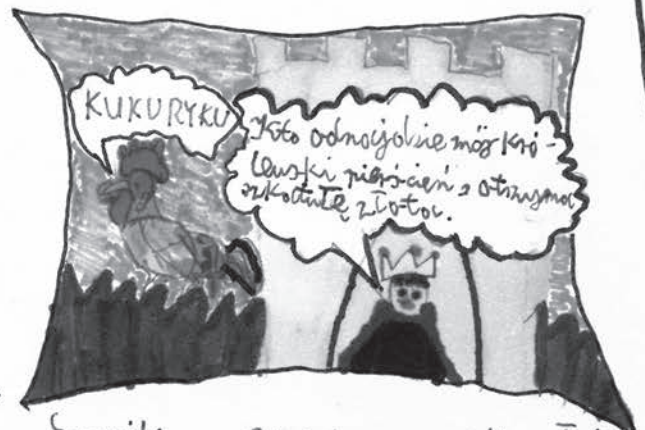 KUKURYKU
Kto odnajdzie mój kró-
lewski pierścień, otrzyma
szkatułę złota.